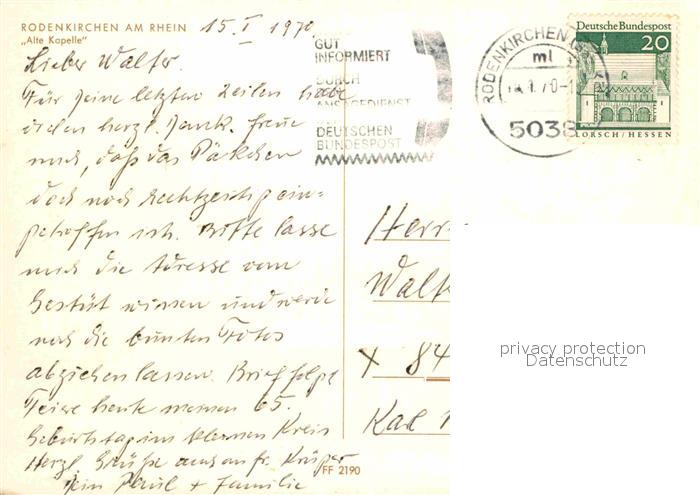 RODENKIRCHEN AM RHEIN
„Alte Kapelle"
15. I 1970
Lieber Walter.
Für Deine letzten Zeilen habe
vielen herzl. Dank. Freue
mich, daß das Päckchen
doch noch rechtzeitig ein=
getroffen ist. Bitte lasse
mich die Adresse vom
Gestüt wissen und werde
noch die bunten Fotos
abziehen lassen. Brief folgt
Feiere heute meinen 65.
Geburtstag im kleinen Kreis
Herzl. Grüße auch an fr.
Dein Paul + Familie
GUT
INFORMIERT
DURCH
DEUTSCHEN
BUNDESPOST
RODENKIRCHEN
ml
5038
Deutsche Bundespost
20
LORSCH / HESSEN
Herrn
Walt
x 84
Karl
FF 2190
privacy protection
Datenschutz